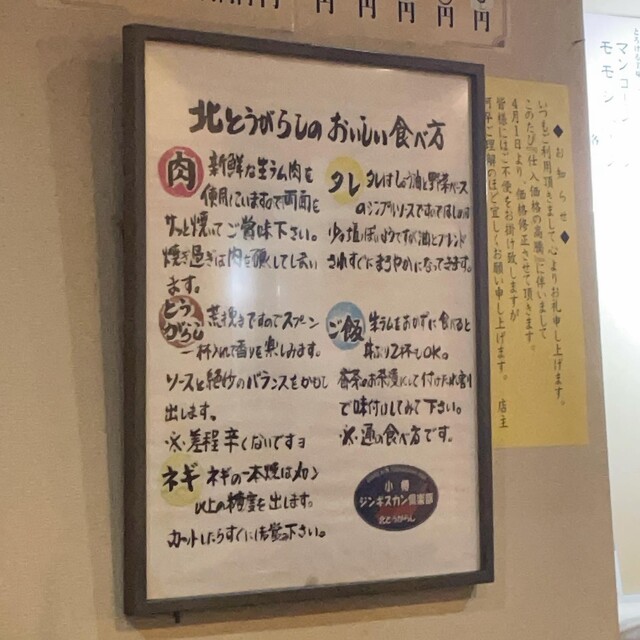 円 円 円 円 円
北とうがらしのおいしい食べ方
肉 新鮮な生ラム肉を
使用していますので両面を
サッと焼いてご賞味下さい。
焼き過ぎは肉を硬くしてしまい
ます。
タレ タレはしょう油と野菜ベース
のシンプルソースですので
少々塩っぽいようですが油とブレンド
されすぐにまろやかになってきます。
とうがらし 荒挽きですのでスプーン
一杯入れて香りを楽しみます。
ソースと絶妙のバランスをかもし
出します。
※差程辛くないですョ
ご飯 生ラムをおかずに食べると
丼ぶり2杯もOK。
番茶のお茶漬にして付けだれ割り
で味付けしてみて下さい。
※通の食べ方です。
ネギ ネギの一本焼はメロン
以上の糖度を出します。
カットしたらすぐに
下さい。
小樽
ジンギスカン倶楽部
北とうがらし
◆お知らせ◆
いつもご利用頂きまして心よりお礼申し上げます。
このたび『仕入価格の高騰』に伴いまして
4月1日より、価格修正させて頂きます。
皆様にはご不便をお掛け致しますが
何卒ご理解のほど宜しくお願い申し上げます。
店主
マッコ
モモジ